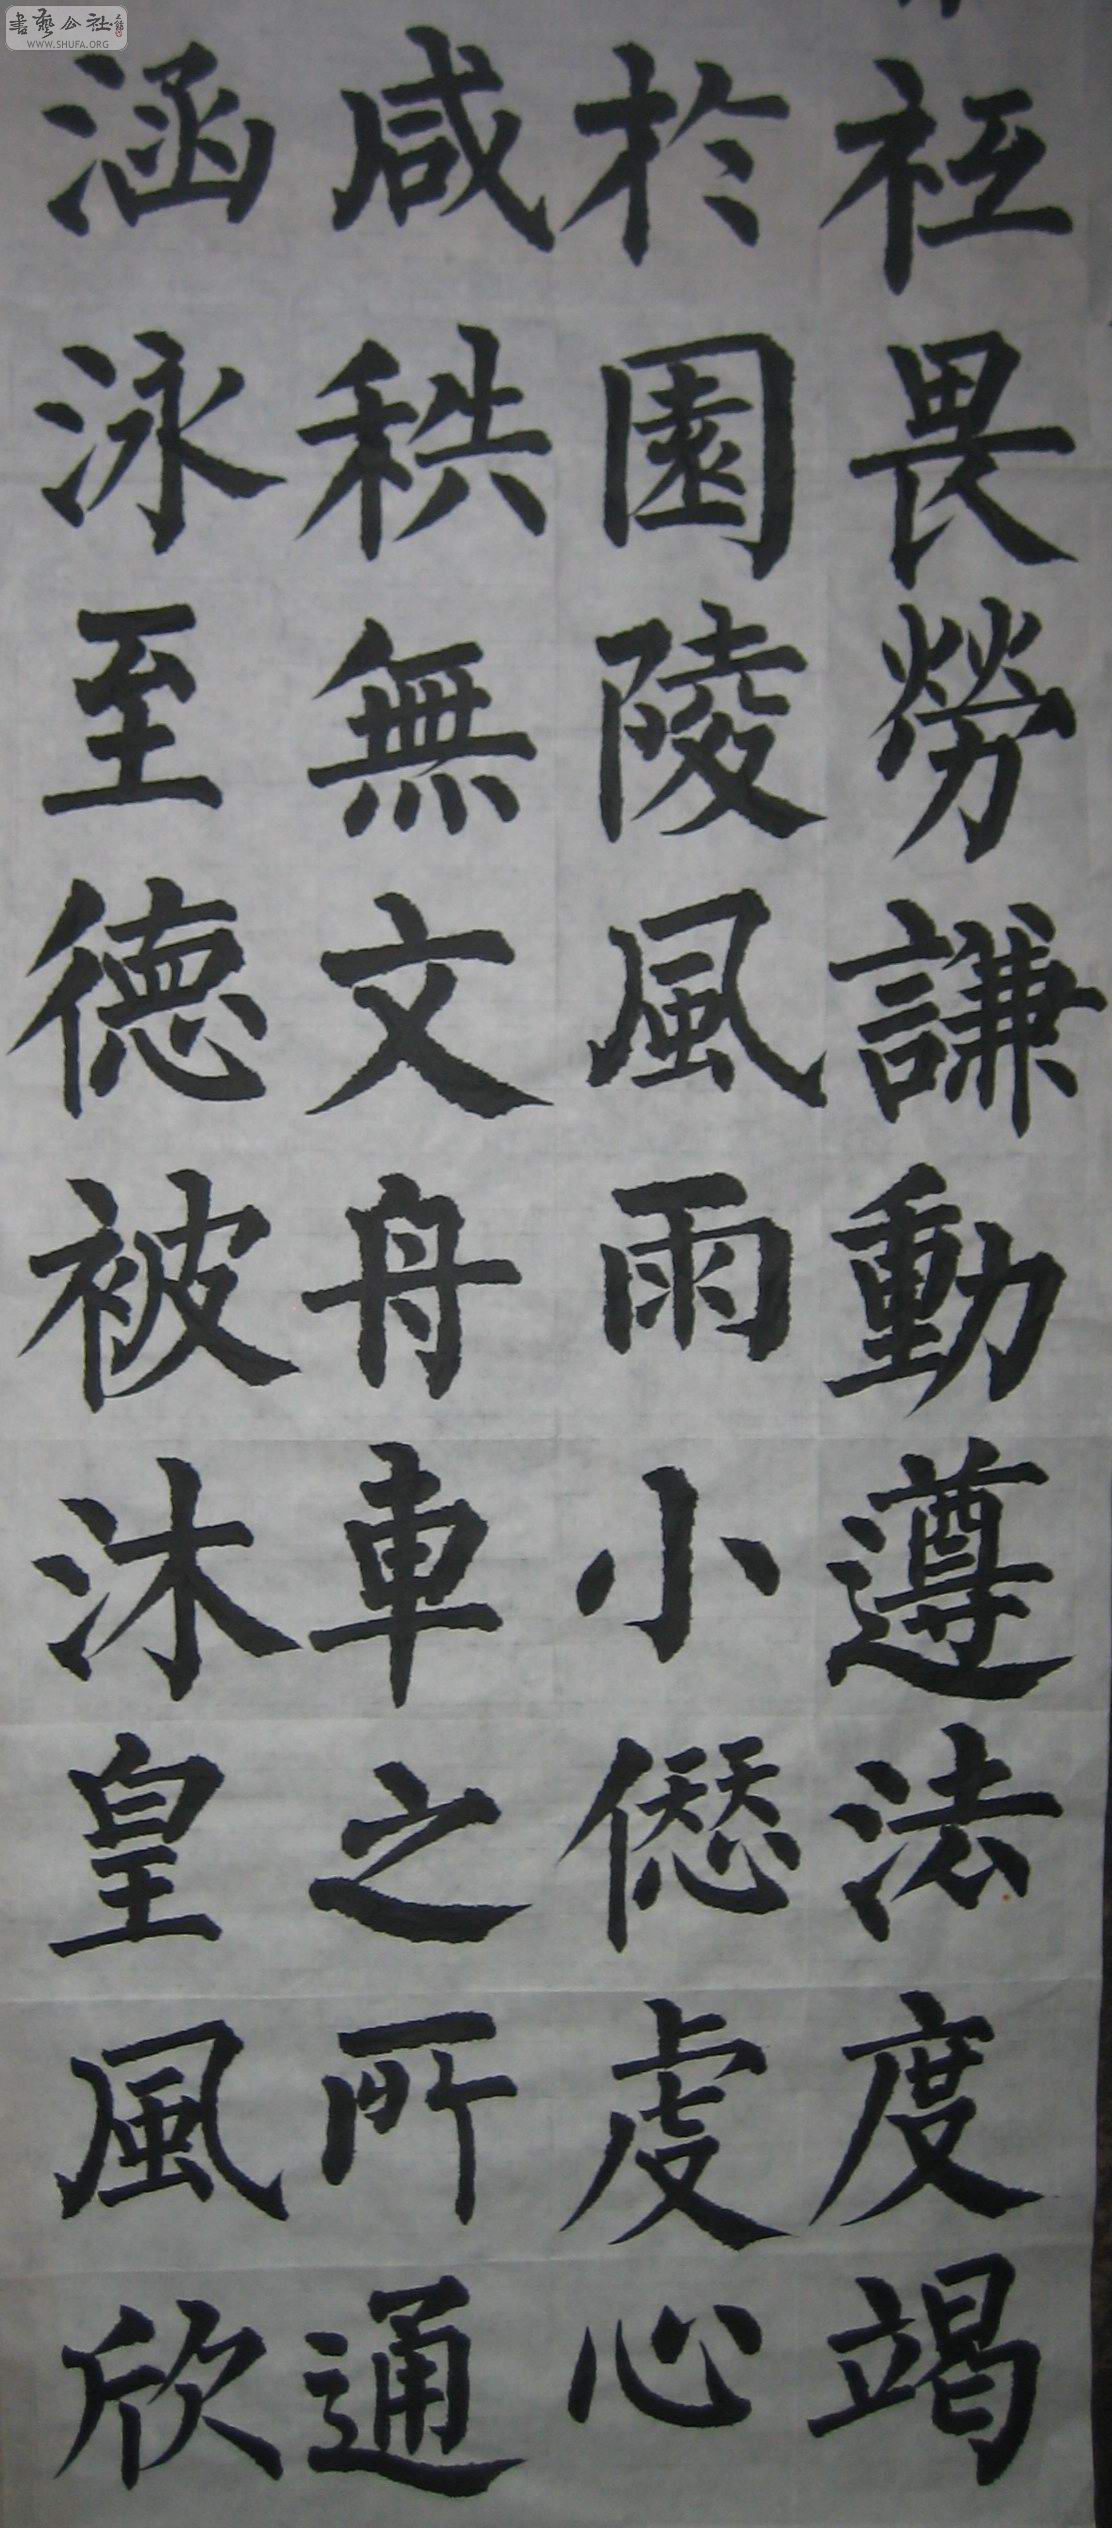 祇畏勞謙動遵法度竭
於園陵風雨小愆處心
咸秩無文舟車之所通
涵泳至德被沐皇風欣
書藝公社
WWW.SHUFA.ORG